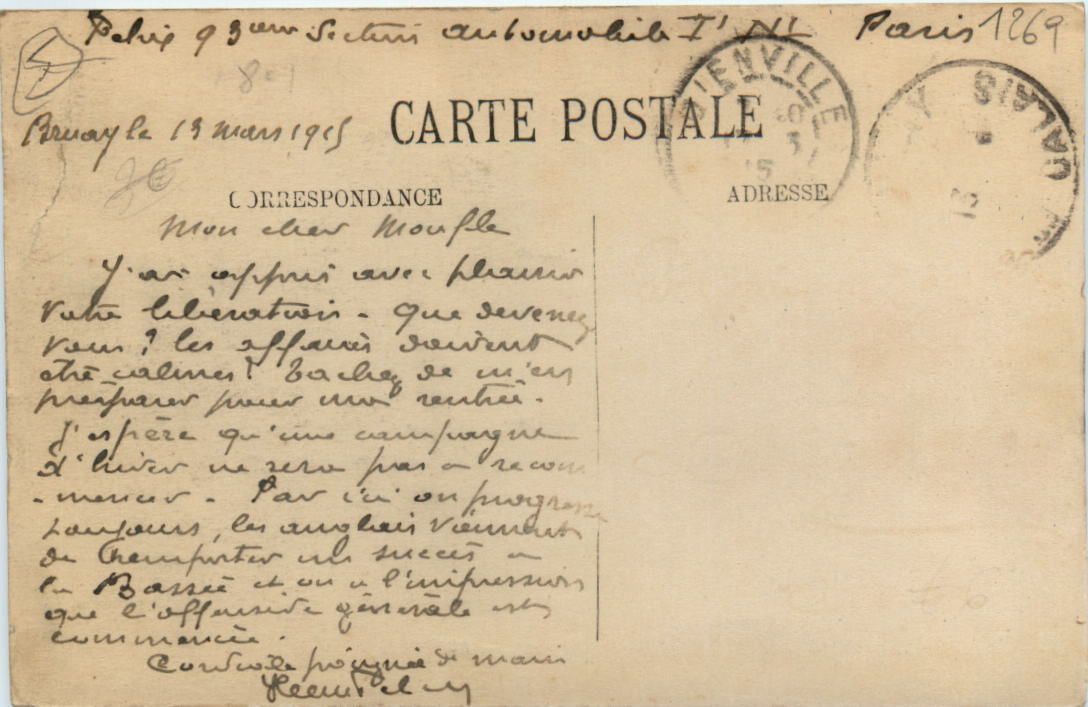 93eme Section automobile Paris 1269
Bruay le 13 mars 1915
CARTE POSTALE
BIENVILLE
CALAIS
CORRESPONDANCE
ADRESSE
Mon cher
J'ai appris avec plaisir
votre libération - Que devenez
vous ? les affaires doivent
être calmes ? tachez de m'en
préparer pour ma rentrée.
J'espère qu'une campagne
d'hiver ne sera pas a recom
-mencer - Par ici on progresse
toujours, les anglais viennent
de remporter un succès a
la Bassée et on a l'impression
que l'offensive générale est
commencée.
Cordiale poignée de main